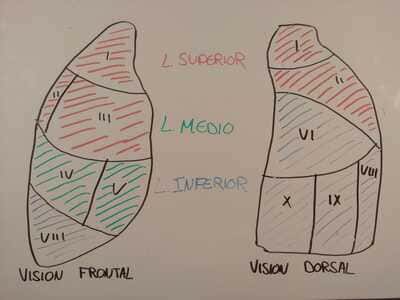 I
II
III
IV
V
VIII
VISION FRONTAL
L. SUPERIOR
L. MEDIO
L. INFERIOR
I
II
VI
VIII
X
IX
VISION DORSAL